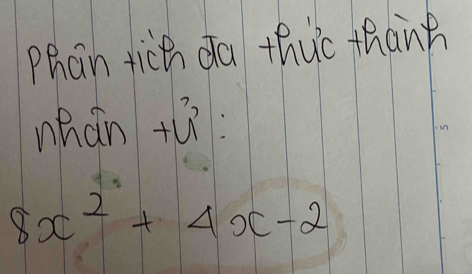 Phân tích đa thức thành
nhân tử :
8x² + 4x - 2